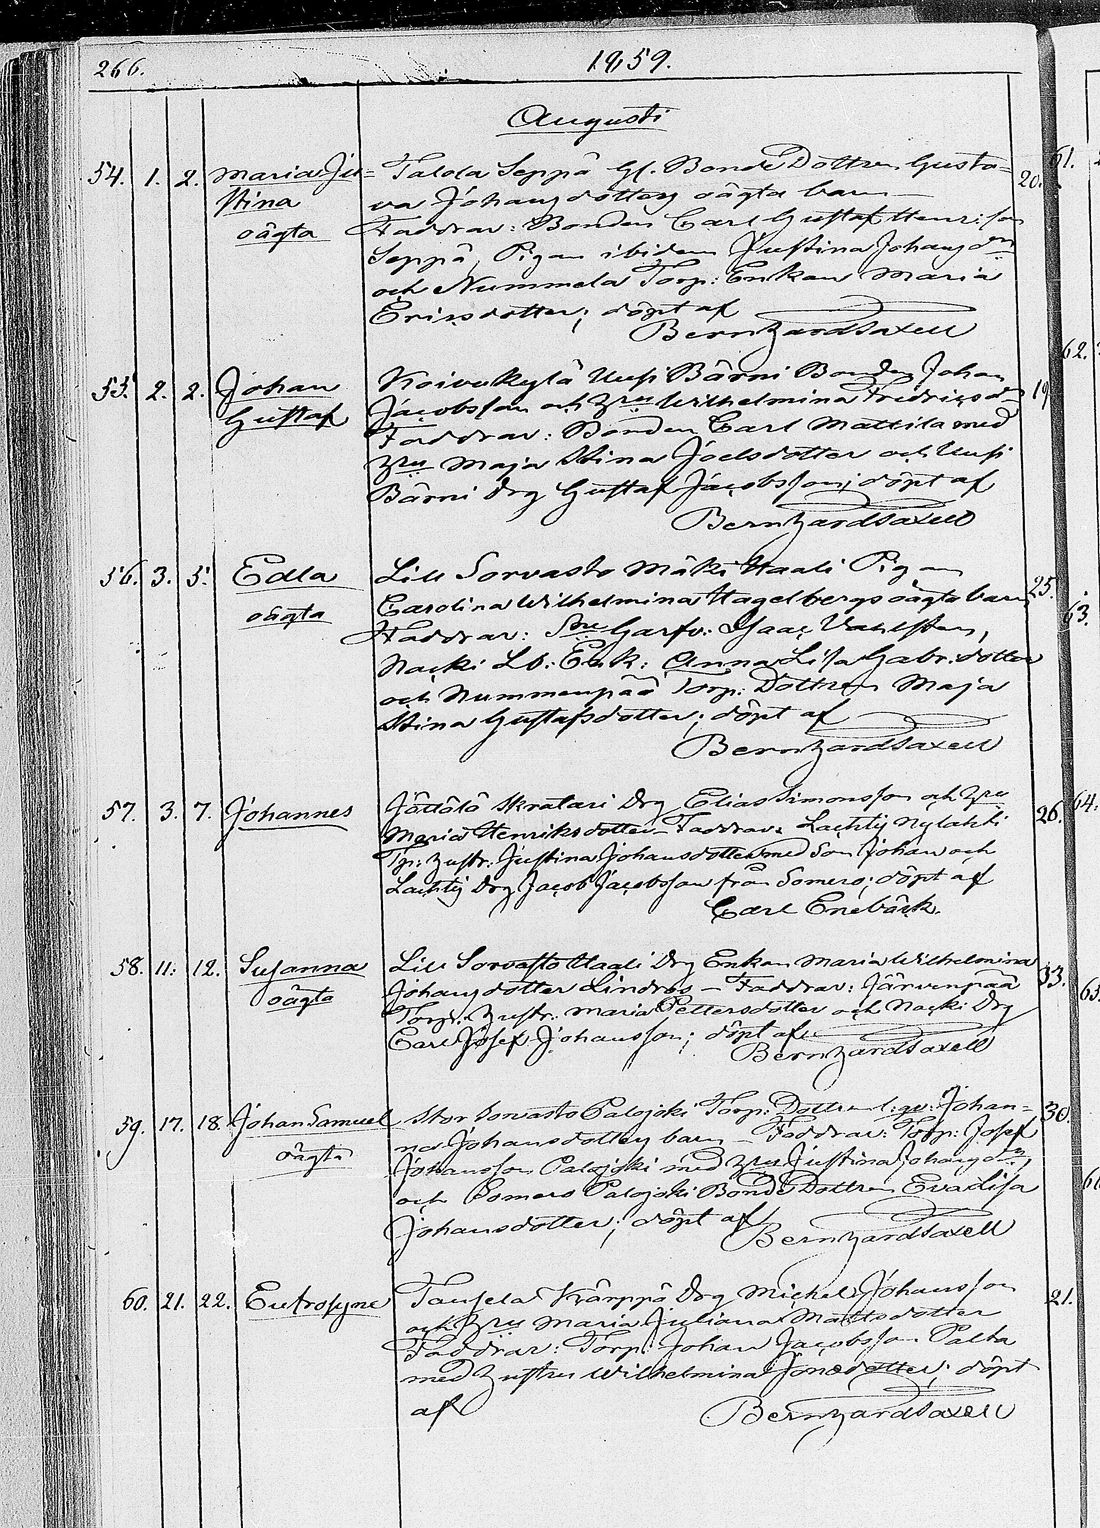 266. 1859.
Augusti
54. 1. 2. Maria Ju= Talola Seppä Gl. Bonde Dottren Gusto= 20.
stina va Johansdotters oägta barn
oägta Faddrar: Bonden Carl Gustaf Henr:son
Seppä, Pigan ibidem Justina Johansdr
och Nummela Torp: Enkan Maria
Ericsdotter; döpt af
Bernhard Saxell
55. 2. 2. Johan Koivukylä Uusi Bärni Bonden Johan 19
Gustaf Jacobsson och Hru Wilhelmina Fredricsdr
Faddrar: Bonden Carl Mattila med
Hru Maja Stina Joelsdotter och Uusi
Bärni Drg Gustaf Jacobsson; döpt af
Bernhard Saxell
56. 3. 5. Edla Lill Sorvasto Mäki Haali Pigan 25.
oägta Carolina Wilhelmina Hagelbergs oägta barn
Faddrar: Garfv: Isaac Vahlsten,
Nacki Lb: Enk: Anna Lisa Gabr:dotter
och Nummenpää Torp: Dottren Maja
Stina Gustafsdotter; döpt af
Bernhard Saxell
57. 3. 7. Johannes Jättölö Skratari Drg Elias Simonsson och Hru 26.
Maria Henriksdotter – Faddrar: Lachtij Nylahti
Tp: Hustr: Justina Johansdotter med Son Johan och
Lachtij Drg Jacob Jacobsson från Somero; döpt af
Carl Enebäck.
58. 11. 12. Susanna Lill Sorvasto Haali Drg Enkan Maria Wilhelmina 33.
oägta Johansdotter Lindros – Faddrar: Järvenpää
Torp: Hustr: Maria Pettersdotter och Nacki Drg
Carl Josef Johansson; döpt af
Bernhard Saxell
59. 17. 18. Johan Samuel Stor Sorvasto Palojoki Torp: Dottren Johan= 30.
oägta na Johansdotters barn – Faddrar: Torp: Josef
Johansson Palojoki med Hru Justina Johansdr,
och Somero Palojoki Bonde Dottren Eva Lisa
Johansdotter; döpt af Bernhard Saxell
60. 21. 22. Eufrosyne Taufela Kärppä Drg Michel Johansson 21.
och Hru Maria Juliana Mattsdotter
Faddrar: Torp: Johan Jacobsson Palha
med Hustru Wilhelmina Jonædotter; döpt
af Bernhard Saxell
61.
62.
63.
64.